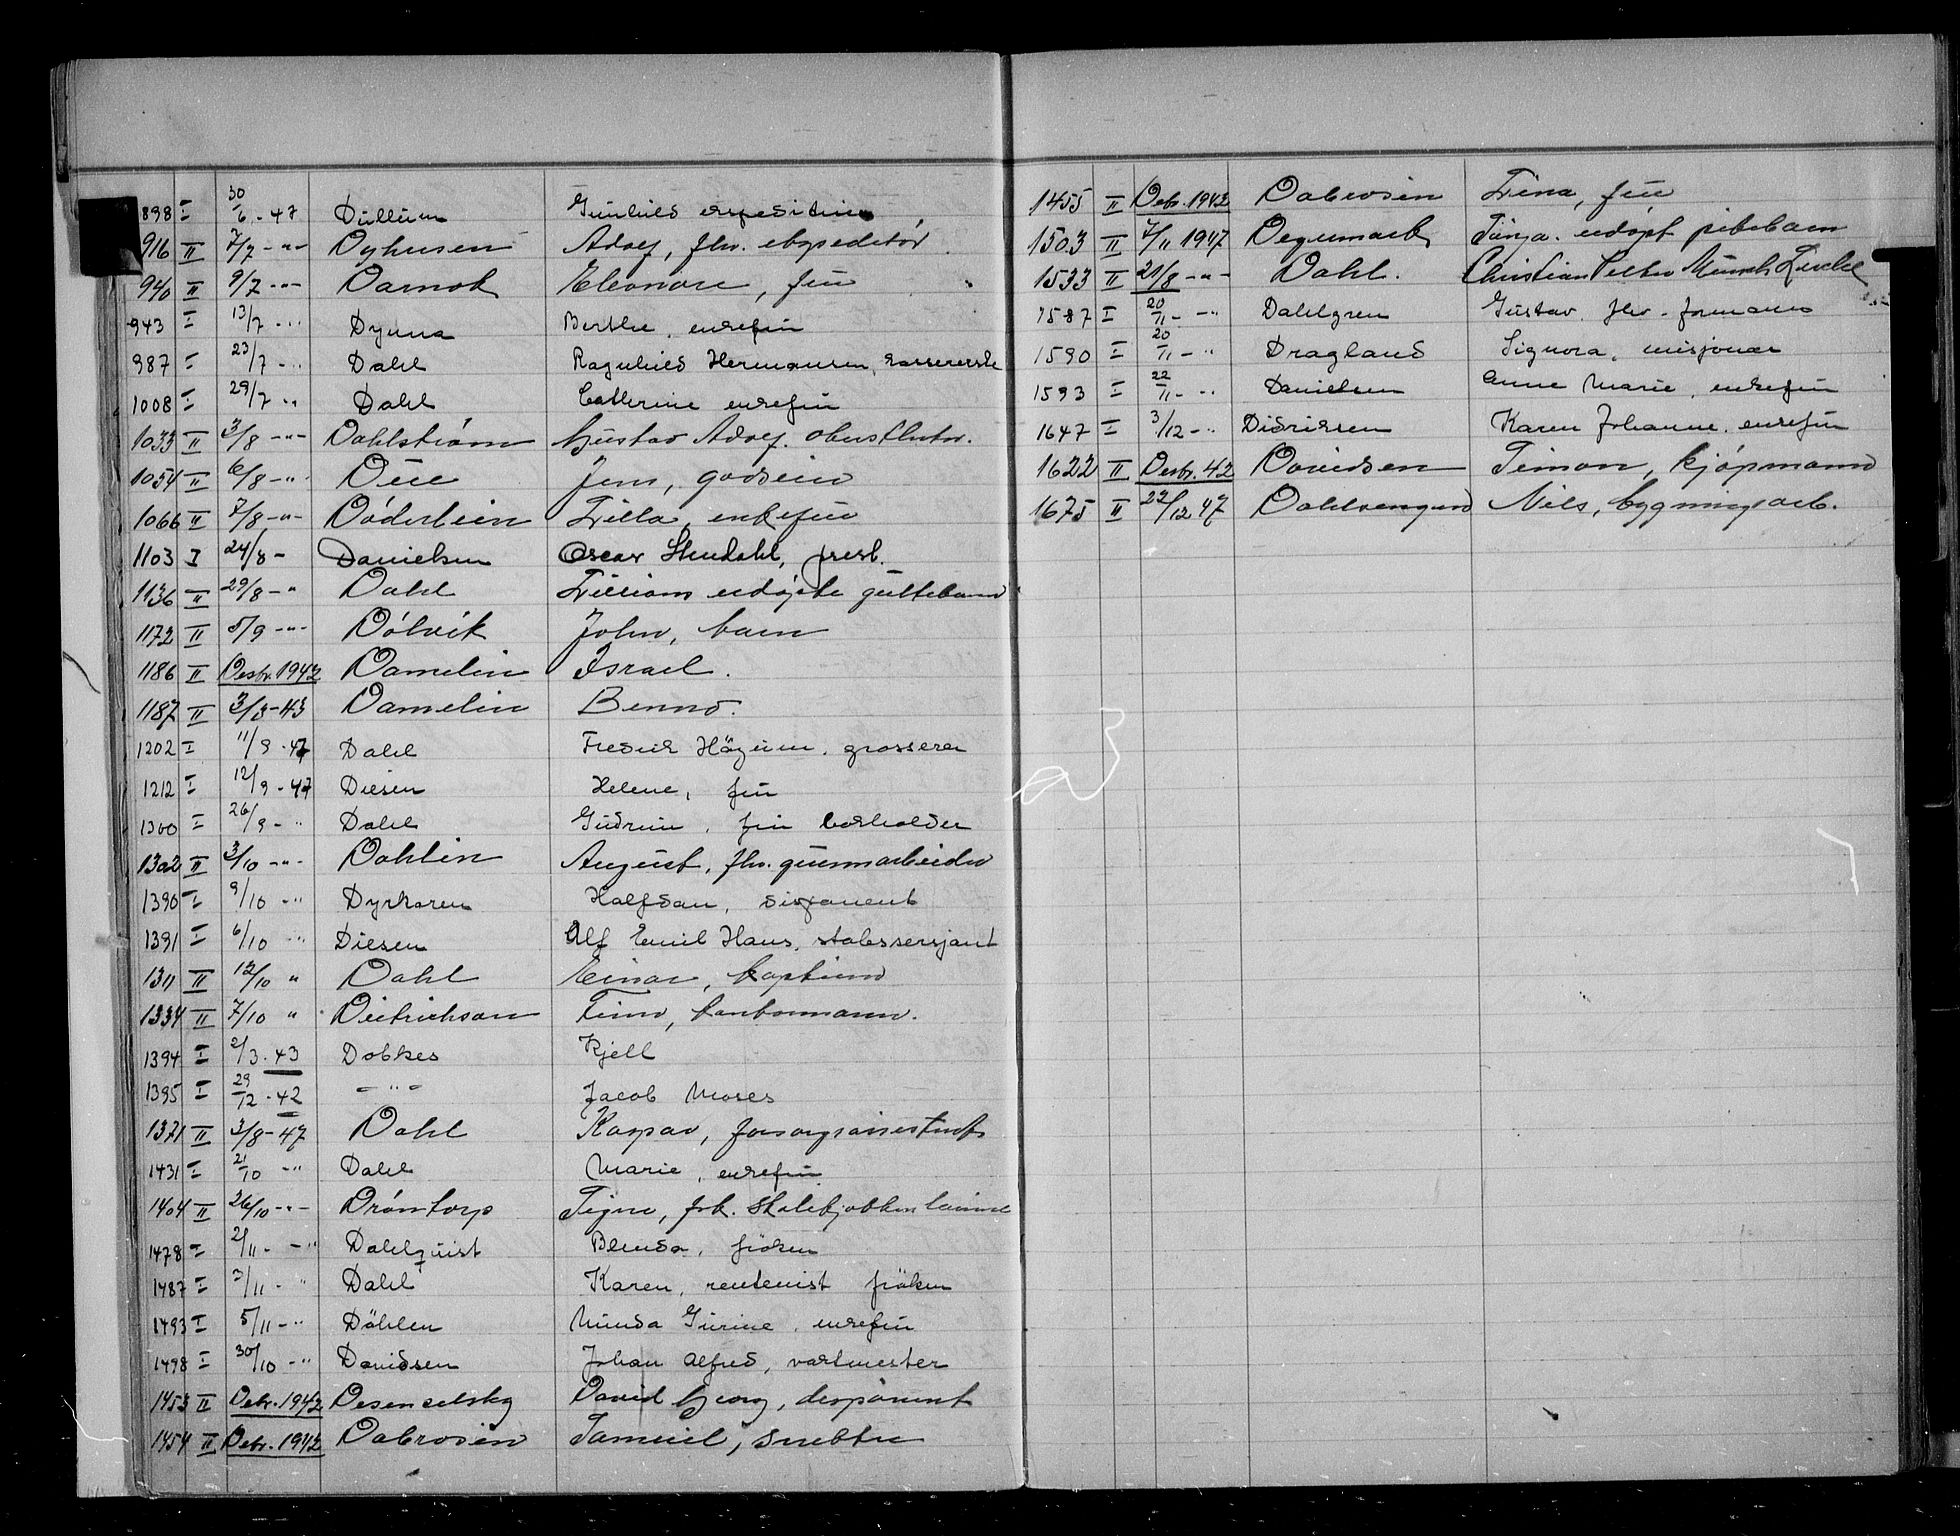 898 I 30/6 - 47 Dullum Gunhild
916 II 7/7 - " - Dyhusen Adolf, fhv. ekspeditør
940 II 9/7 - " - Darnok Eleonore, frue
943 I 13/7 - " Dynna Berthe, enkefru
987 I 23/7 - " Dahl Ragnhild Hermansen, kassererske
1008 I 29/7 - " Dahl Cathrine enkefru
1033 II 3/8 - " - Dahlstrøm Gustav Adolf.
1054 II 6/8 - " - Due Jens, godseier
1066 II 7/8 - " - Døderlein Lilla, enkefru
1103 I 24/8 - Danielsen Oscar Stendahl, prest.
1136 II 29/8 - " Dahl udøpte guttebarn
1172 II 5/9 - " - Dølvik John, barn
1186 II Desbr. 1942 Damelin Israel.
1187 II 3/3 - 43 Damelin Benno.
1202 I 11/9 - 47 Dahl Fredrik Högum, grosserer
1212 I 12/9 - 47 Diesen Helene, fru
1300 I 26/9 - " Dahl Gudrun, fru
1302 II 3/10 - " - Dahlin August, fhv. gummiarbeider
1390 I 9/10 - " Dyrkoren Halfdan, disponent
1391 I 6/10 " Diesen Alf Emil Hans, stabssersjant
1311 II 12/10 " Dahl Einar, kaptein
1334 II 7/10 " Dietrichson Finn, kontormann.
1394 I 2/3 - 43 Dobkes Kjell
1395 I 29/12 - 42 - " - Jacob Moses
1371 II 3/8 - 47 Dahl Kaspar,
1431 I 21/10 - " Dahl Marie, enkefru
1404 II 26/10 - " - Drøntorp Signe, frk.
1478 I 2/11 - " Dahlquist Blenda, fröken
1487 I 3/11 - " Dahl Karen, rentenist fröken
1493 I 5/11 - " Döhlen Munda Gurine, enkefru
1498 I 30/10 - " Davidsen Johan Alfred, vaktmester
1453 II Debr. 1942 Desenselsky David Georg, disponent
1454 II Debr. 1942 Dabrosin Samuel, snekker
1455 II Debr. 1942 Dabrosin Lina, frue
1503 II 7/11 1947 Degermark Tanja. udøpt pikebarn
1533 II 21/8 - " - Dahl. Christian Petter Munch
1587 I 20/11 - " Dahlgren Gustav, fhv. formann
1590 I 20/11 - " Dragland Signora, misjonær
1593 I 22/11 - " Danielsen Anne Marie, enkefru
1647 I 3/12 - " Didriksen Karen Johanne, enkefru
1622 II Desbr. 42 Davidsen Simon, kjøpmann
1675 II 22/12 47 Dahlsengund Nils, bygningsarb.